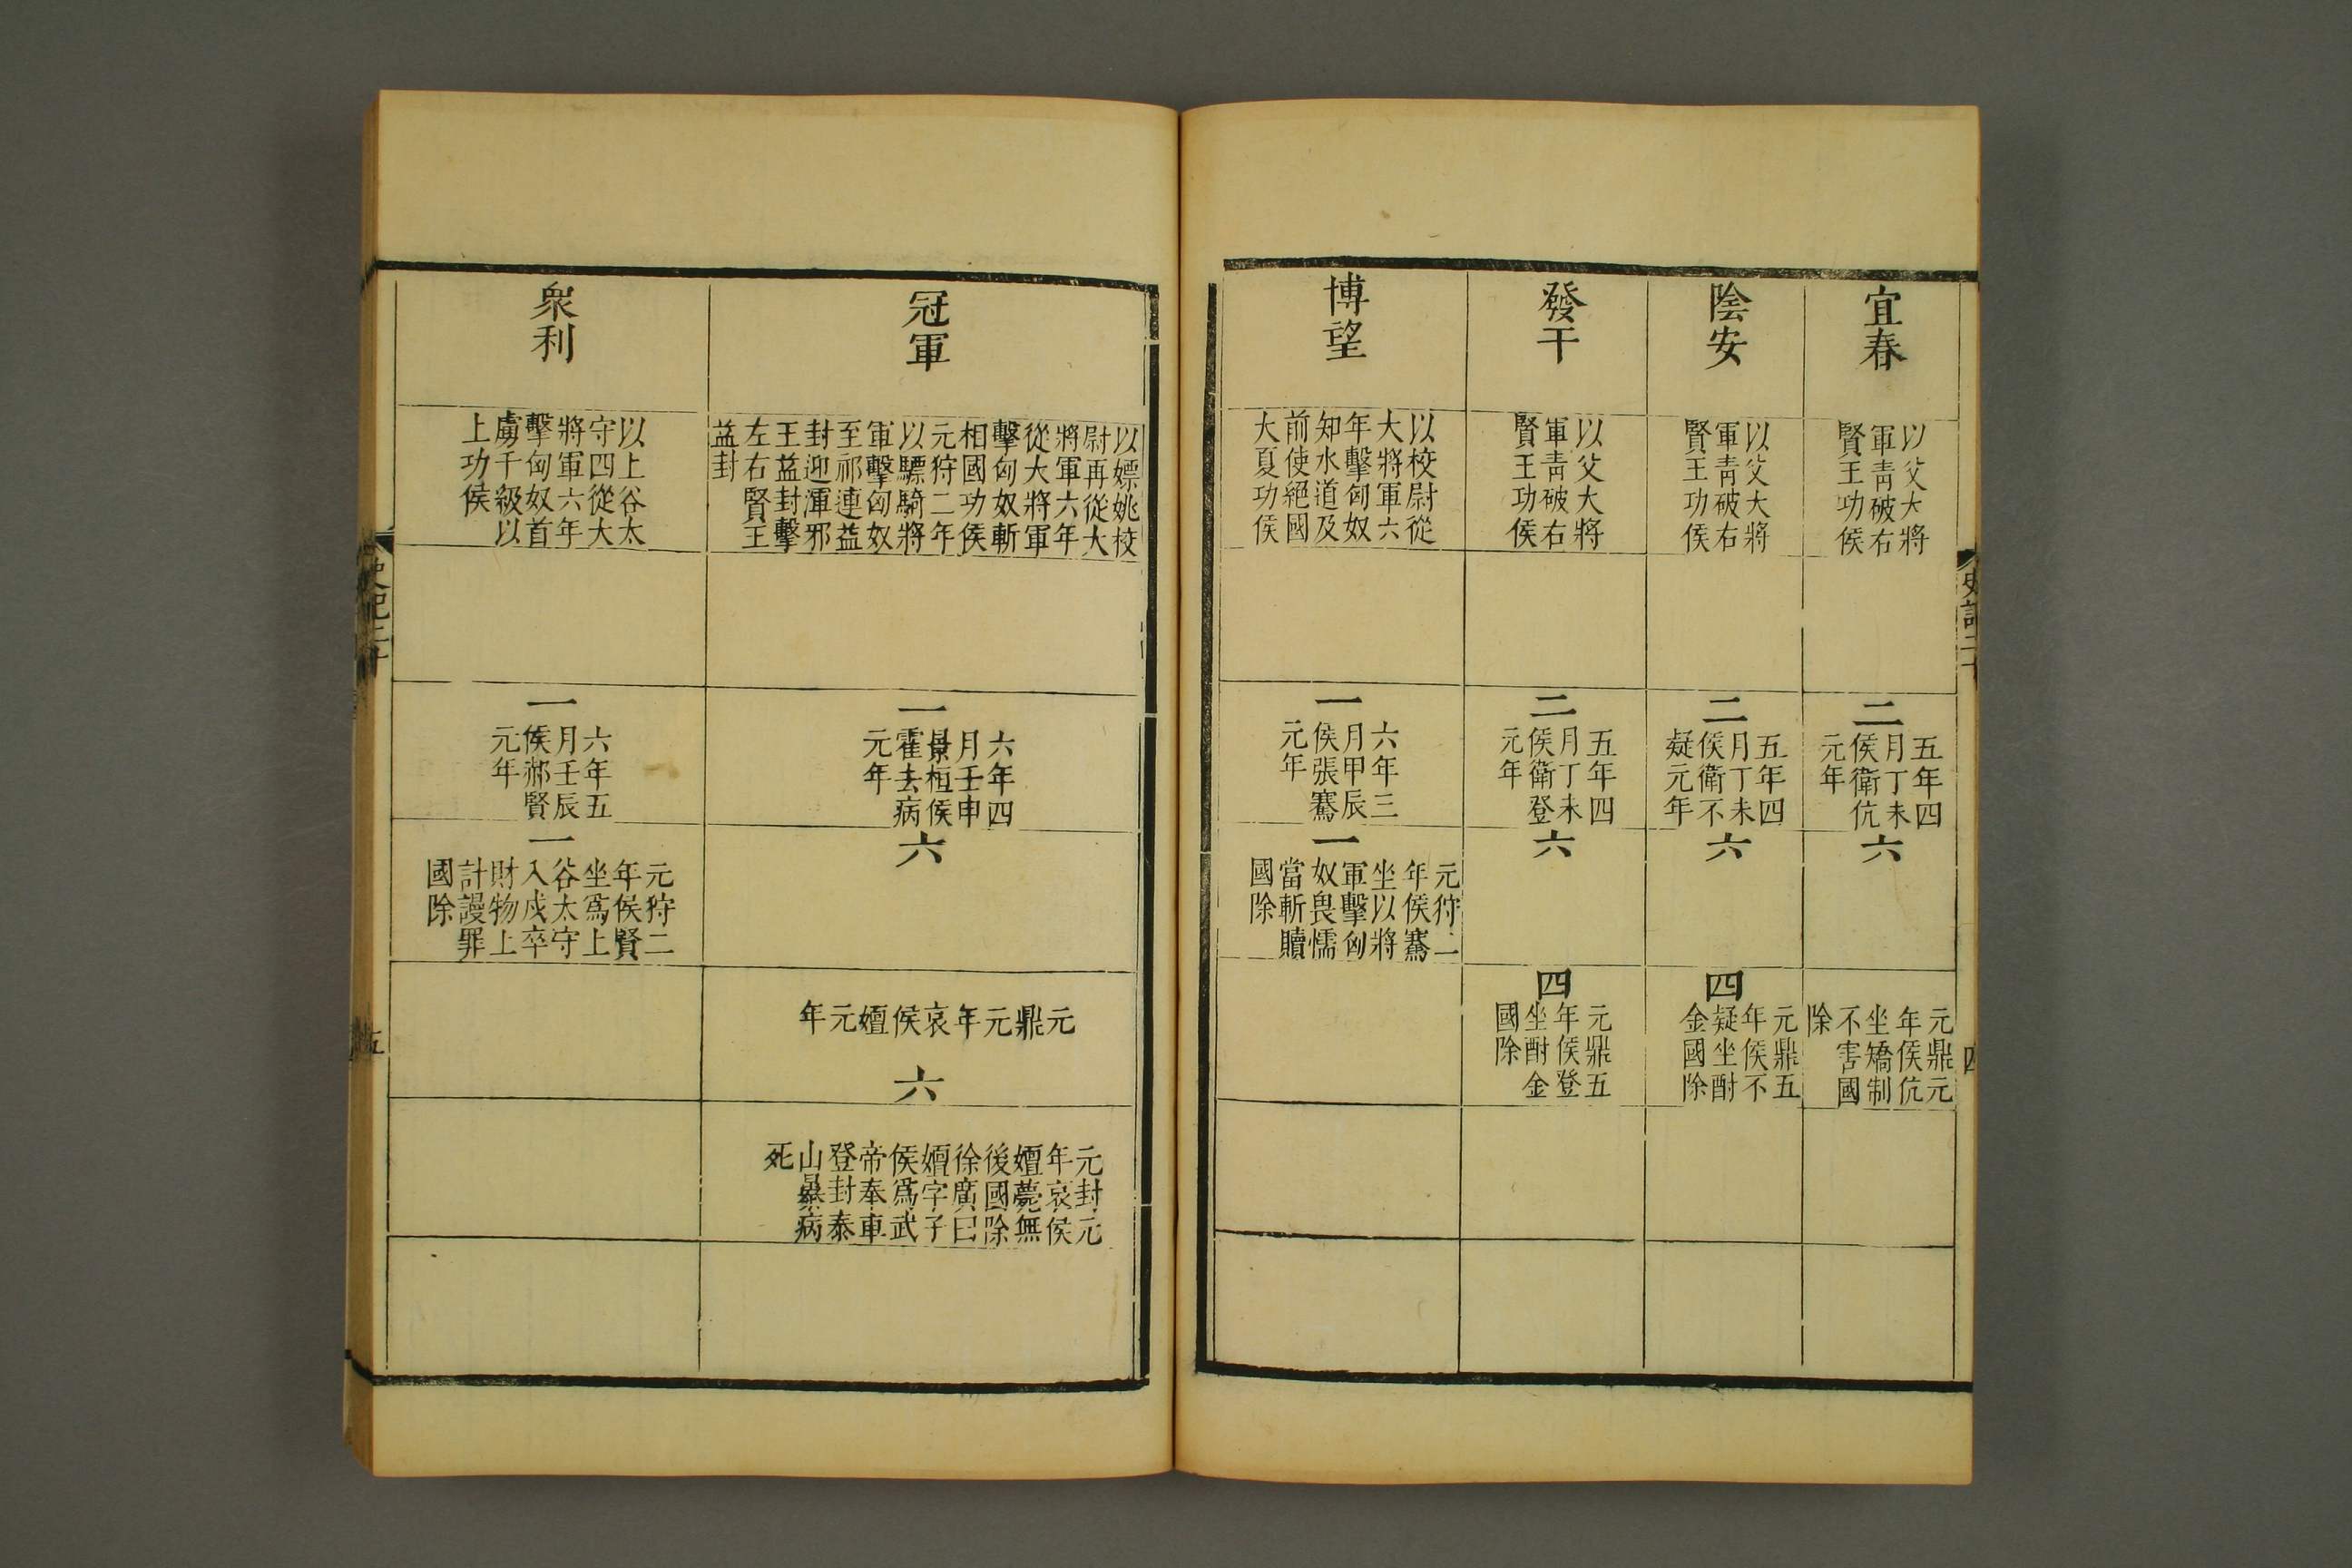 史記二十
四
宜春
以父大將
軍靑破右
賢王功侯
二
五年四
月丁未
侯衛伉
元年
六
元鼎元
年侯伉
坐矯制
不害國
除
陰安
以父大將
軍靑破右
賢王功侯
二
五年四
月丁未
侯衛不
疑元年
六
四
元鼎五
年侯不
疑坐酎
金國除
發干
以父大將
軍靑破右
賢王功侯
二
五年四
月丁未
侯衛登
元年
六
四
元鼎五
年侯登
坐酎金
國除
博望
以校尉從
大將軍六
年擊匈奴
知水道及
前使絕國
大夏功侯
一
六年三
月甲辰
侯張騫
元年
一
元狩二
年侯騫
坐以將
軍擊匈
奴畏懦
當斬贖
國除
冠軍
以嫖姚校
尉再從大
將軍六年
從大將軍
擊匈奴斬
相國功侯
元狩二年
以驃騎將
軍擊匈奴
至祁連益
封迎渾邪
王益封擊
左右賢王
益封
一
六年四
月壬申
景桓侯
霍去病
元年
六
元鼎元年哀侯嬗元年
六
元封元
年哀侯
嬗薨無
後國除
徐廣曰
嬗字子
侯爲武
帝奉車
登封泰
山暴病
死
衆利
以上谷太
守四從大
將軍六年
擊匈奴首
虜千級以
上功侯
一
六年五
月壬辰
侯郝賢
元年
一
元狩二
年侯賢
坐爲上
谷太守
入戍卒
財物上
計謾罪
國除
史記二十
五